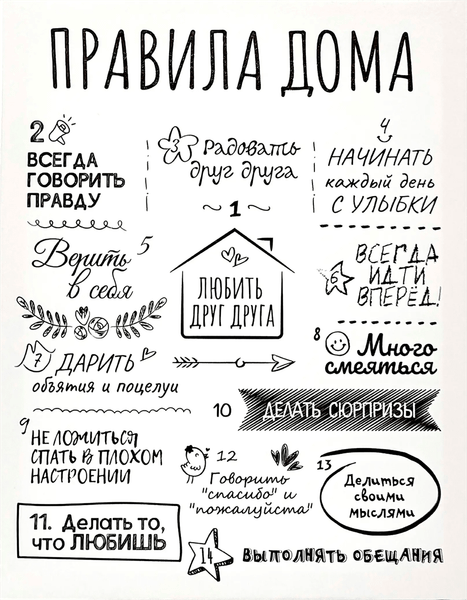 ПРАВИЛА ДОМА
~ 1 ~
ЛЮБИТЬ
ДРУГ ДРУГА
2
ВСЕГДА
ГОВОРИТЬ
ПРАВДУ
3
Радовать
друг друга
4
НАЧИНАТЬ
каждый день
С УЛЫБКИ
5
Верить
в себя
6
ВСЕГДА
ИДТИ
ВПЕРЁД!
7
ДАРИТЬ
объятия и поцелуи
8
Много
смеяться
9
НЕ ЛОЖИТЬСЯ
СПАТЬ В ПЛОХОМ
НАСТРОЕНИИ
10
ДЕЛАТЬ СЮРПРИЗЫ
11. Делать то,
что ЛЮБИШЬ
12
Говорить
"спасибо" и
"пожалуйста"
13
Делиться
своими
мыслями
14
ВЫПОЛНЯТЬ ОБЕЩАНИЯ